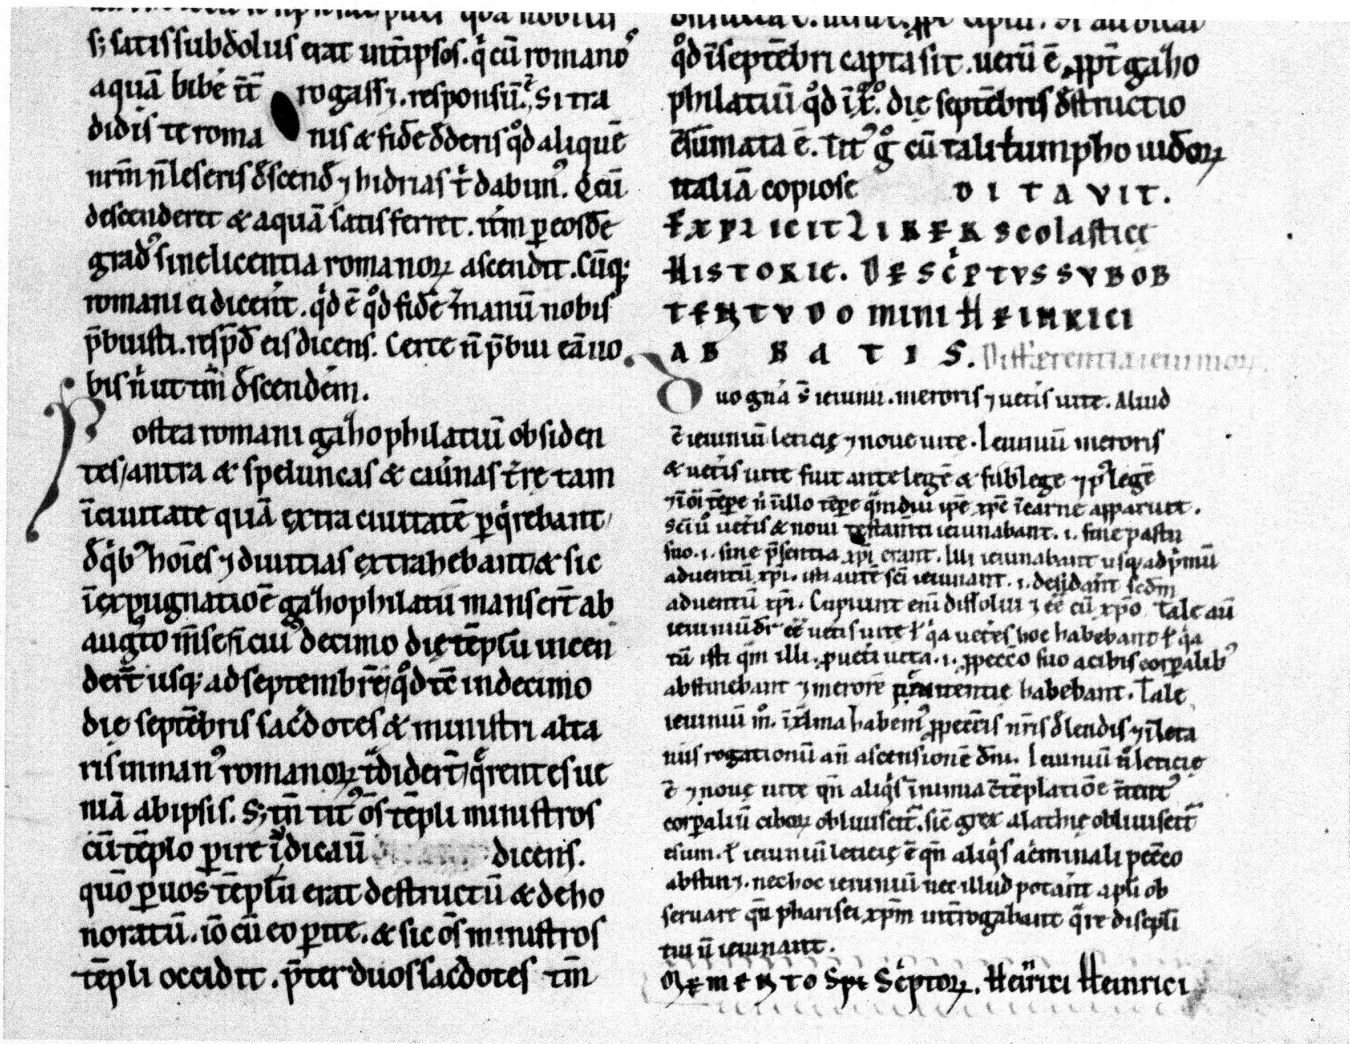 s; satis subdolus erat int ipsos. q cū romanos
aquā bibe rogassi. responsū. Si tra
didis te roma nis & fidē dederis qd aliquē
nrm n leseris descend ⁊ hidrias t dabim. Q cū
descenderet & aquā satis ferret. itm p eosdē
grad sine licentia romanorꝝ ascendit. Cūq;
romani ei dicent. qd ē qd fidē manū nobis
pbuisti. respd eis dicens. Certe n pbui eā uo
bis n ut tm descendem.
Postea romani gazophilatiū obsiden
tes antra & speluncas & cauernas tre tam
ī ciuitate quā extra ciuitatē pqrebant
d qb hoīes ⁊ diuitias extrahebant & sic
ī expugnatioē gazophilatii manserī ab
augto decimo die tēplū incen
derī usq; ad septembrē qd tē in decimo
die septēbris sacdotes & ministri alta
ris in man romanorꝝ tdiderī qrentes ue
niā ab ipsis. S; tn tit os tēpli ministros
cū tēplo pire iudicauī dicens.
quō p uos tēplū erat destructū & deho
noratū. iō cū eo pite. & sic os ministros
tēpli occidit. pter duos sacdotes tm
qd ī septēbri capta sit. uerū ē ppt gazho
philatiū qd ī die septēbris destructio
ē. Tit g cū tali tiumpho iudeorꝝ
italiā copiose DITAVIT.
EXPLICIT LIBER Scolastice
HISTORIE. DESCPTVS SVB OB
TENTV DOMINI HEINRICI
ABBATIS. Differentia ieiuniorꝝ
Duo gna s ieiunii. meroris ⁊ uetis uite. Aliud
ē ieiuniū leticię ⁊ noue uite. Ieiuniū meroris
& uetis uite fuit ante legē & sub lege ⁊ p legē
⁊ ī oi tēpe n illo tēpe qmdiu ipe xpc ī carne apparuit.
Sci u uetis & noui testamti ieiunabant. i. sine pastu
suo. i. sine psentia xpi erant. Illi ieiunabant usq; ad pmū
aduentū xpi. isti autē sci ieiunant. i. desidant secdm
aduentū xpi. Cupiunt enī dissolui ⁊ ēē cū xpo. Tale aū
ieiuniū dr ēē uetis uite l qa uetes hoc habebant l qa
tū isti qm illi p ueti uita. i. p peccō suo a cibis corpalib
abstinebant ⁊ merorē penitentie habebant. Tale
ieiuniū m ī xlma habem p peccis nris delendis ⁊ ī leta
niis rogationū an ascensionē dni. Ieiuniū u leticię
ē ⁊ noue uite qn aliqs ī nimia ctēplatiōe
corpaliū ciborꝝ obliuiscit. sic grex a lathie obliuiscit
esum. l ieiuniū leticię ē qn aliqs a cminali peccō
abstin. nec hoc ieiuniū nec illud potant apli ob
seruare qn pharisei xpm introgabant qre discipli
tui n ieiunant.
MEMENTO Spc Scptorꝝ. Heinrici Heinrici